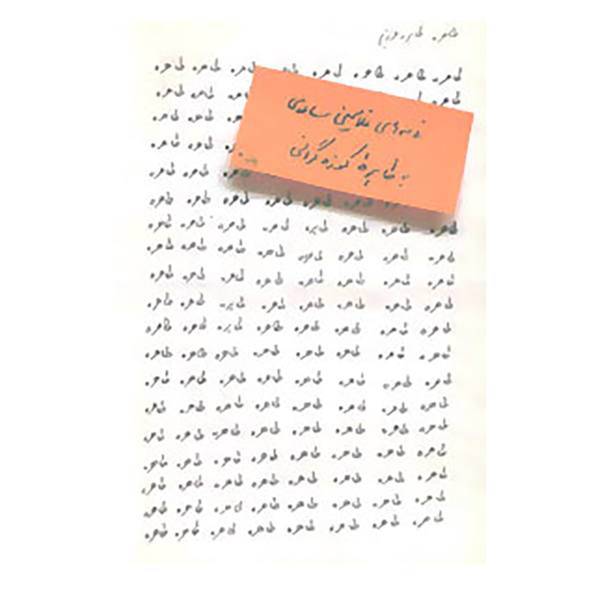 طاهره. طاهره عزیزم
طاهره. طاهره. طاهره. طاهره. طاهره. طاهره. طاهره. طاهره.
طاهره. طاهره. طاهره. طاهره.
نامه‌های غلامحسین ساعدی
به طاهرهٔ کوزه‌گرانی
طاهره. طاهره.
طاهره. طاهره.
طاهره. طاهره.
طاهره. طاهره. طاهره. طاهره. طاهره. طاهره.
طاهره. طاهره. طاهره. طاهره. طاهره. طاهره. طاهره. طاهره.
طاهره. طاهره. طاهره. طاهره. طاهره. طاهره. طاهره. طاهره.
طاهره. طاهره. طاهره. طاهره. طاهره. طاهره. طاهره. طاهره.
طاهره. طاهره. طاهره. طاهره. طاهره. طاهره. طاهره. طاهره.
طاهره. طاهره. طاهره. طاهره. طاهره. طاهره. طاهره. طاهره.
طاهره. طاهره. طاهره. طاهره. طاهره. طاهره. طاهره. طاهره.
طاهره. طاهره. طاهره. طاهره. طاهره. طاهره. طاهره. طاهره.
طاهره. طاهره. طاهره. طاهره. طاهره. طاهره. طاهره. طاهره.
طاهره. طاهره. طاهره. طاهره. طاهره. طاهره. طاهره. طاهره.
طاهره. طاهره. طاهره. طاهره. طاهره. طاهره. طاهره. طاهره.
طاهره. طاهره. طاهره. طاهره. طاهره. طاهره. طاهره. طاهره.
طاهره. طاهره. طاهره. طاهره. طاهره. طاهره. طاهره. طاهره.
طاهره. طاهره. طاهره. طاهره. طاهره. طاهره. طاهره. طاهره.